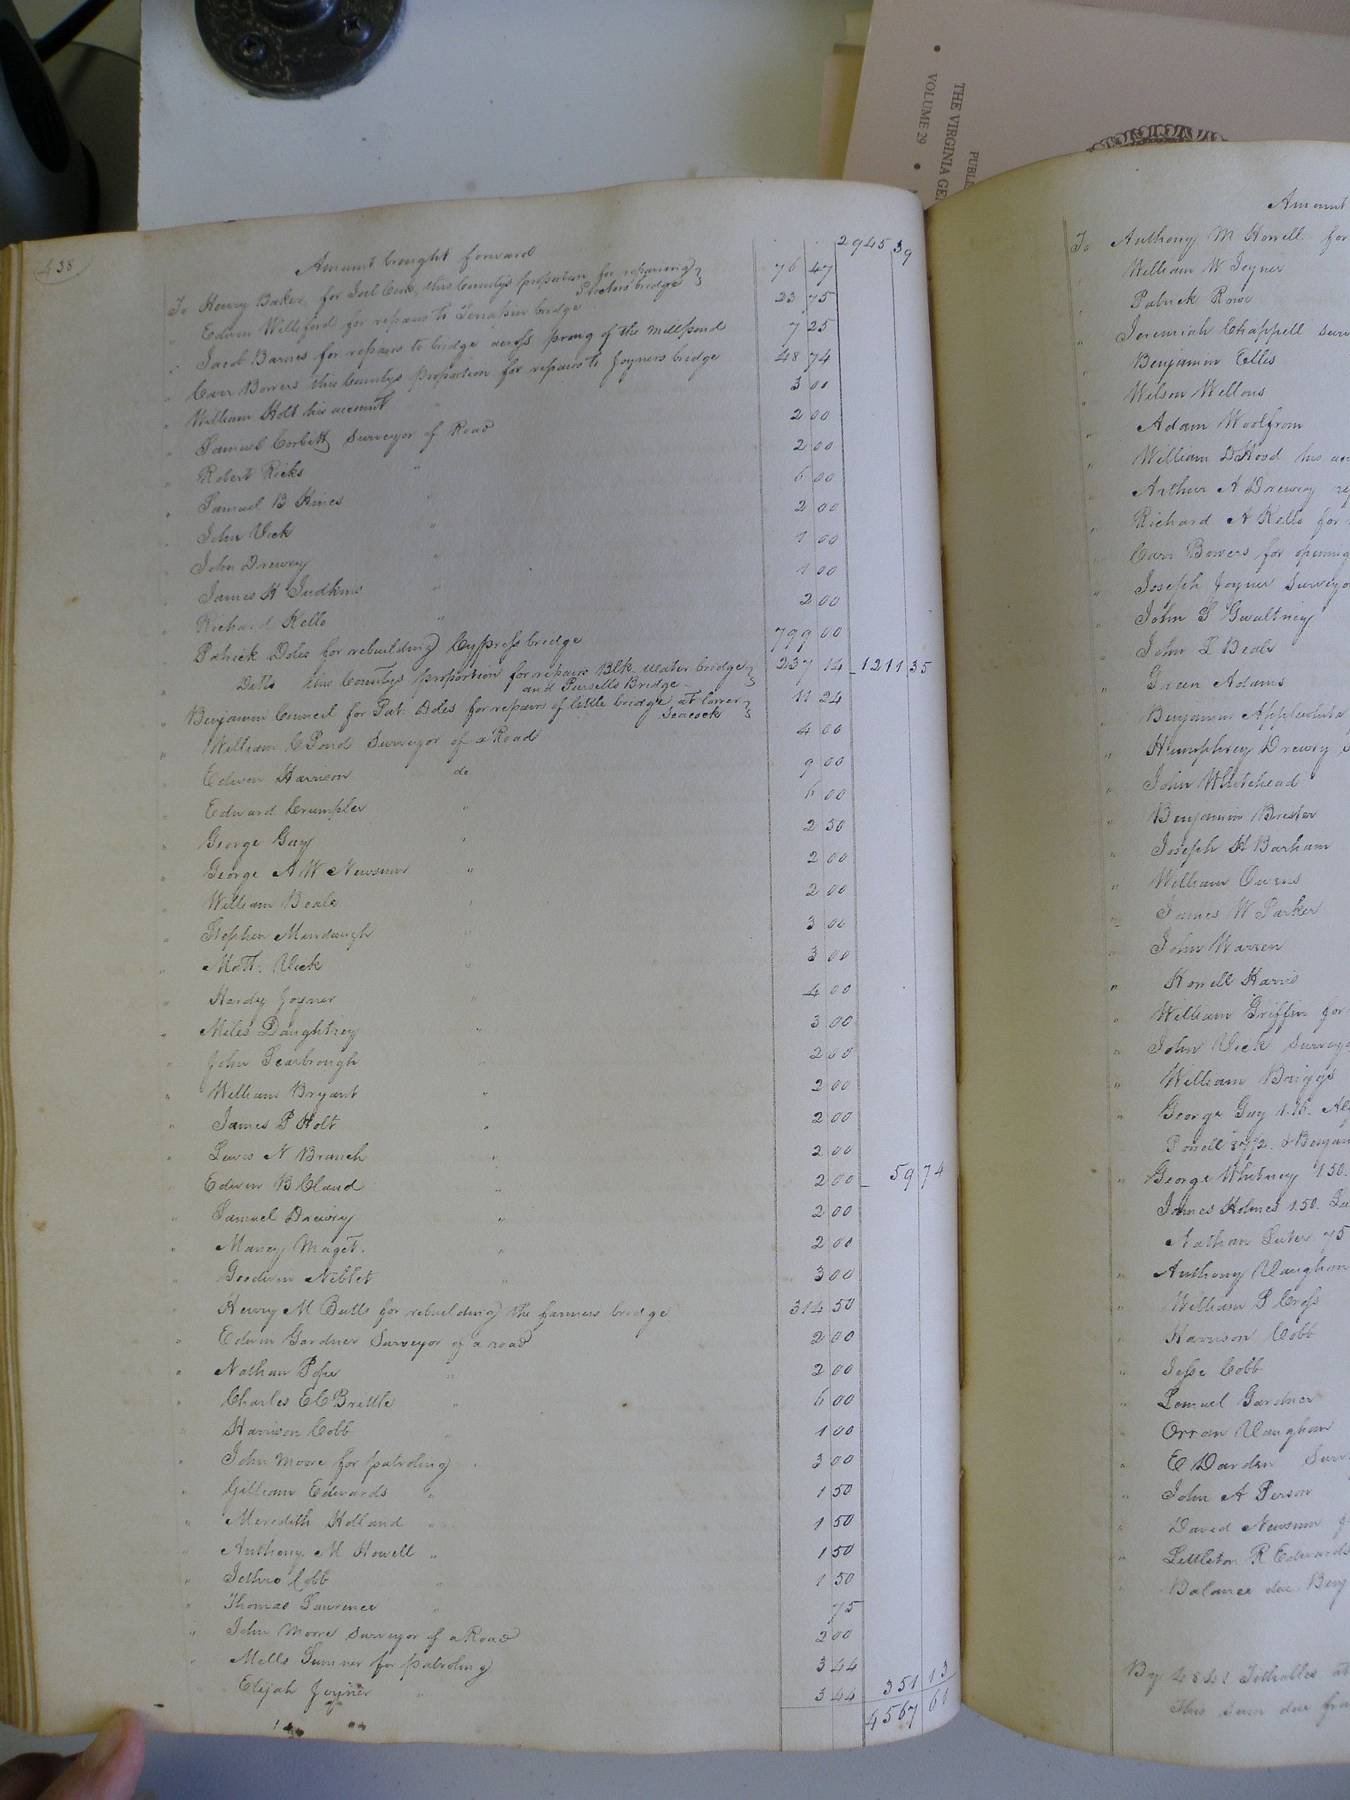 THE VIRGINIA GE
VOLUME 29
438
Amount brought forward 2945 39
To Henry Baker for Joel Cook, this Countys proportion for repairing 76 47
bridge
Edwin Williford for repairs to Terrapin bridge 23 75
Jacob Barnes for repairs to bridge across prong of the millpond 7 25
Carr Bowers this Countys proportion for repairs to Joyners bridge 48 74
William Holt his account 3 00
Samuel Corbitt Surveyor of Road 2 00
Robert Ricks " 2 00
Samuel B Hines " 6 00
John Vick " 2 00
John Drewry " 1 00
James H Judkins " 1 00
Richard Kello " 2 00
Patrick Doles for rebuilding Cypress bridge 799 00
Ditto this Countys proportion for repairs Blk water bridge 237 14 1211 35
and Pursells Bridge
Benjamin Council for Pat. Doles for repairs of little bridge at lower 11 24
Seacock
William C Pond Surveyor of a Road 4 00
Edwin Harrison do 9 00
Edward Crumpler " 6 00
George Gay " 2 50
George A W Newsum " 2 00
William Beale " 2 00
Stephen Mendaugh " 3 00
Matt. Vick " 3 00
Hardy Joyner " 4 00
Miles Daughtrey " 3 00
John Scarbrough " 2 00
William Bryant " 2 00
James P Holt " 2 00
Lewis N Branch " 2 00
Edwin B Claud " 2 00 59 74
Samuel Drewry " 2 00
Maney Maget. " 2 00
Goodwin Niblet " 3 00
Henry M Butts for rebuilding the farmers bridge 314 50
Edwin Gardner Surveyor of a road 2 00
Nathan Pope " 2 00
Charles E C Brittle " 6 00
Harrison Cobb " 1 00
John Moore for patroling 3 00
Gilliam Edwards " 1 50
Meredith Holland " 1 50
Anthony M Howell " 1 50
Jethro Cobb " 1 50
Thomas Lawrence " 75
John Moore Surveyor of a Road 2 00
Mills Sumner for patroling 3 44
Elijah Joyner " 3 44 351 13
4567 61
Amount
To Anthony M Howell for
William W Joyner
Patrick Rose
Jeremiah Chappell Surv
Benjamin Ellis
Wilson Wellons
Adam Woolfrom
William D Hood his ac
Arthur A Drewry
Richard A Kello for
Carr Bowers for opening
Joseph Joyner Surveyo
John S Gwaltney
John L Beale
Green Adams
Benjamin Applewhite
Humphrey Drewry S
John Whitehead
Benjamin Brister
Joseph H Barham
William Owens
James W Parker
John Warren
Howell Harris
William Griffin for
John Vick Survey
William Briggs
George Gay 1.15.
Powell & Benjam
George Whitney 1.50.
James Holmes 1.50.
Nathan Luter 75
Anthony Vaughan
William P Cross
Harrison Cobb
Jesse Cobb
Lemuel Gardner
Orran Vaughan
E Darden Surv
John A Person
David Newsum
Littleton R Edwards
Balance due Benj
By 4841 Tithables at
this sum due fro